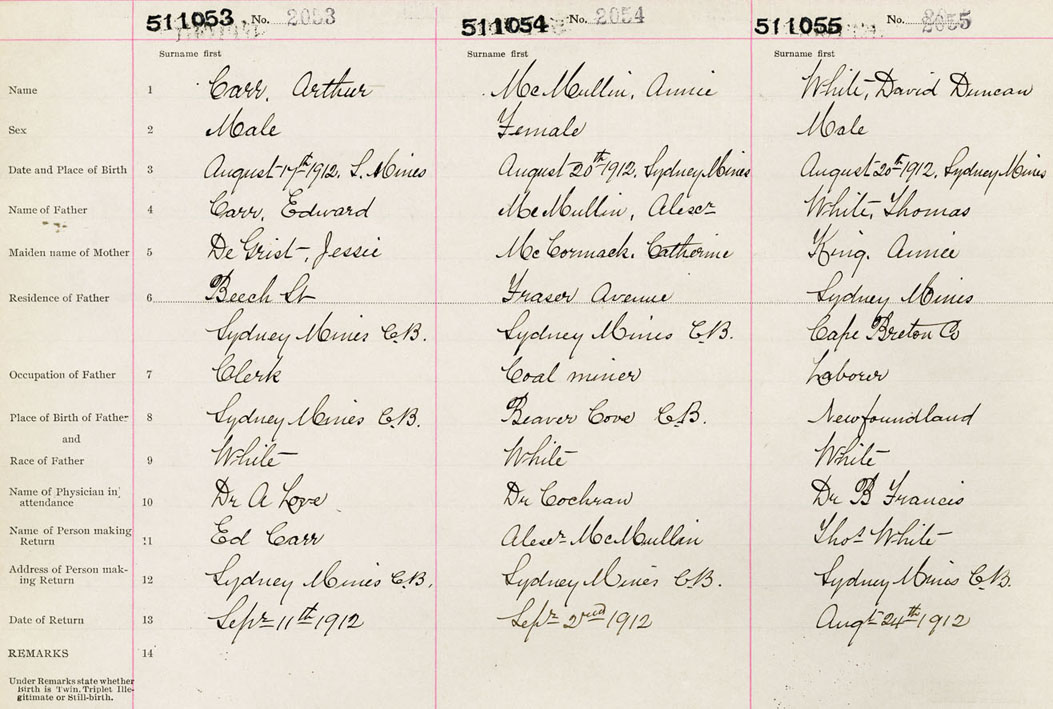 511053 No. 2053 511054 No. 2054 511055 No. 2055
Surname first Surname first Surname first
Name 1 Carr, Arthur McMullin, Annie White, David Duncan
Sex 2 Male Female Male
Date and Place of Birth 3 August 17th 1912, S. Mines August 20th 1912, Sydney Mines August 20th 1912, Sydney Mines
Name of Father 4 Carr, Edward McMullin, Alexr White, Thomas
Maiden name of Mother 5 De Grist, Jessie McCormack, Catherine King, Annie
Residence of Father 6 Beech St Fraser Avenue Sydney Mines
Sydney Mines C.B. Sydney Mines C.B. Cape Breton Co
Occupation of Father 7 Clerk Coal miner Laborer
Place of Birth of Father 8 Sydney Mines C.B. Beaver Cove C.B. Newfoundland
and
Race of Father 9 White White White
Name of Physician in attendance 10 Dr A Love Dr Cochran Dr B Francis
Name of Person making Return 11 Ed Carr Alexr McMullin Thos White
Address of Person mak-ing Return 12 Sydney Mines C.B. Sydney Mines C.B. Sydney Mines C.B.
Date of Return 13 Sepr 11th 1912 Sepr 2nd 1912 Augt 24th 1912
REMARKS 14
Under Remarks state whether
Birth is Twin, Triplet Ille-
gitimate or Still-birth.